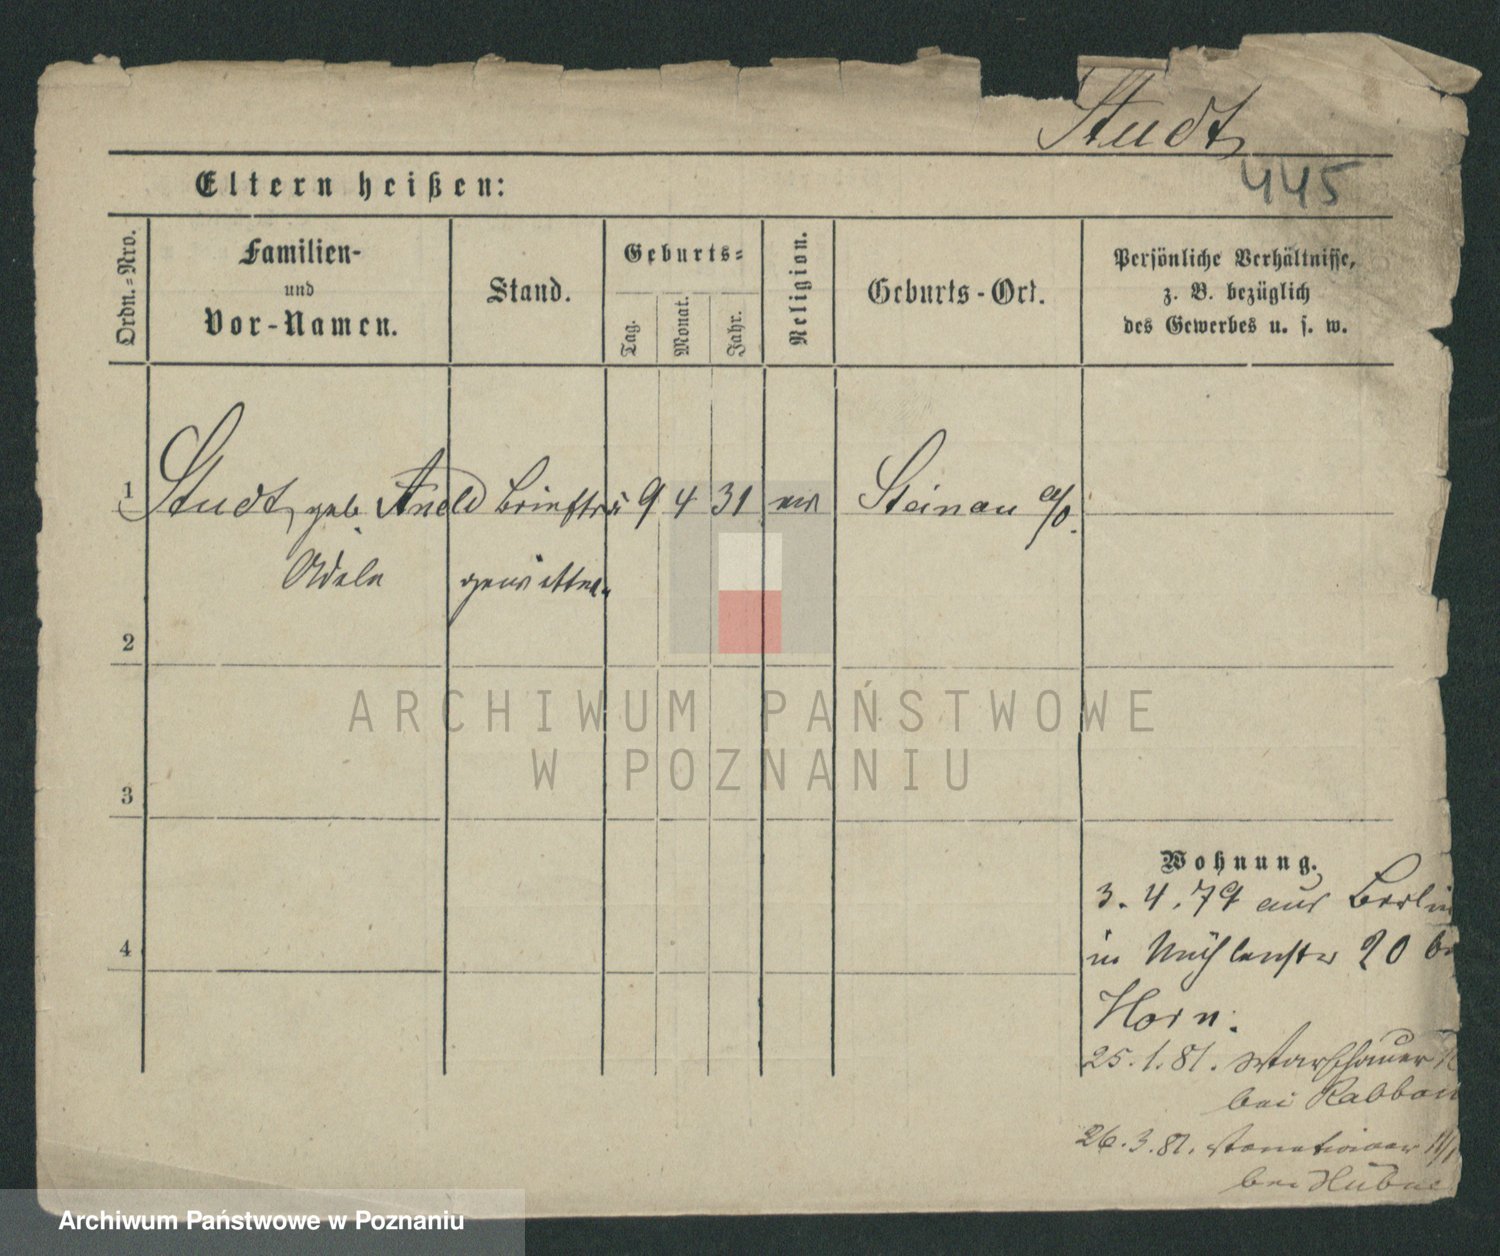 Studt
445
Eltern heißen:
Ordn.-Nro.
Familien-
und
Vor-Namen.
Stand.
Geburts-
Tag.
Monat.
Jahr.
Religion.
Geburts-Ort.
Persönliche Verhältnisse,
z. B. bezüglich
des Gewerbes u. s. w.
1 Studt geb. 9 4 31 ev Steinau a/O.
Adele
2
3
4
ARCHIWUM PAŃSTWOWE
W POZNANIU
Wohnung.
3. 4. 79 aus Berlin
in Mühlenstr 20 bei
Horn.
25. 1. 81. Warschauer
bei
26. 3. 81.
bei
Archiwum Państwowe w Poznaniu